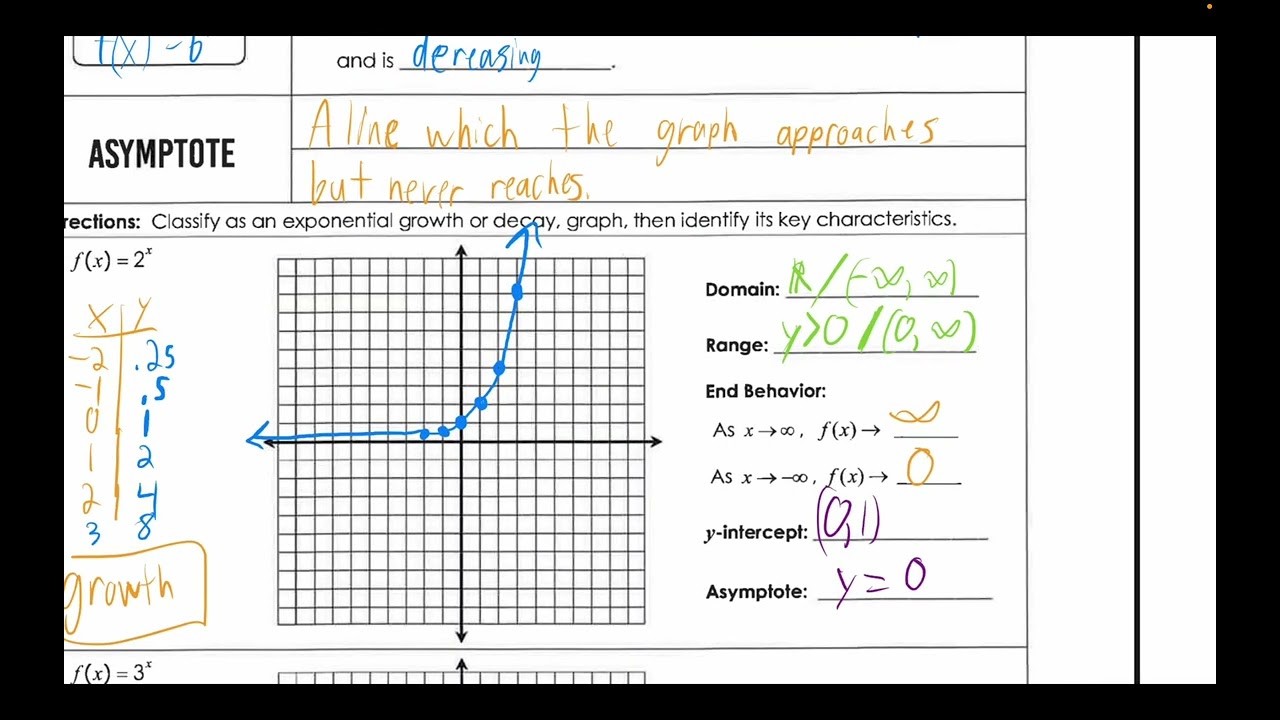 f(x) - b
and is dereasing.
ASYMPTOTE
A line which the graph approaches
but never reaches.
rections: Classify as an exponential growth or decay, graph, then identify its key characteristics.
f(x) = 2ˣ
X Y
-2 .25
-1 .5
0 1
1 2
2 4
3 8
growth
Domain: ℝ / (-∞, ∞)
Range: y>0 / (0, ∞)
End Behavior:
As x→∞, f(x)→ ∞
As x→-∞, f(x)→ 0
y-intercept: (0,1)
Asymptote: y = 0
f(x) = 3ˣ